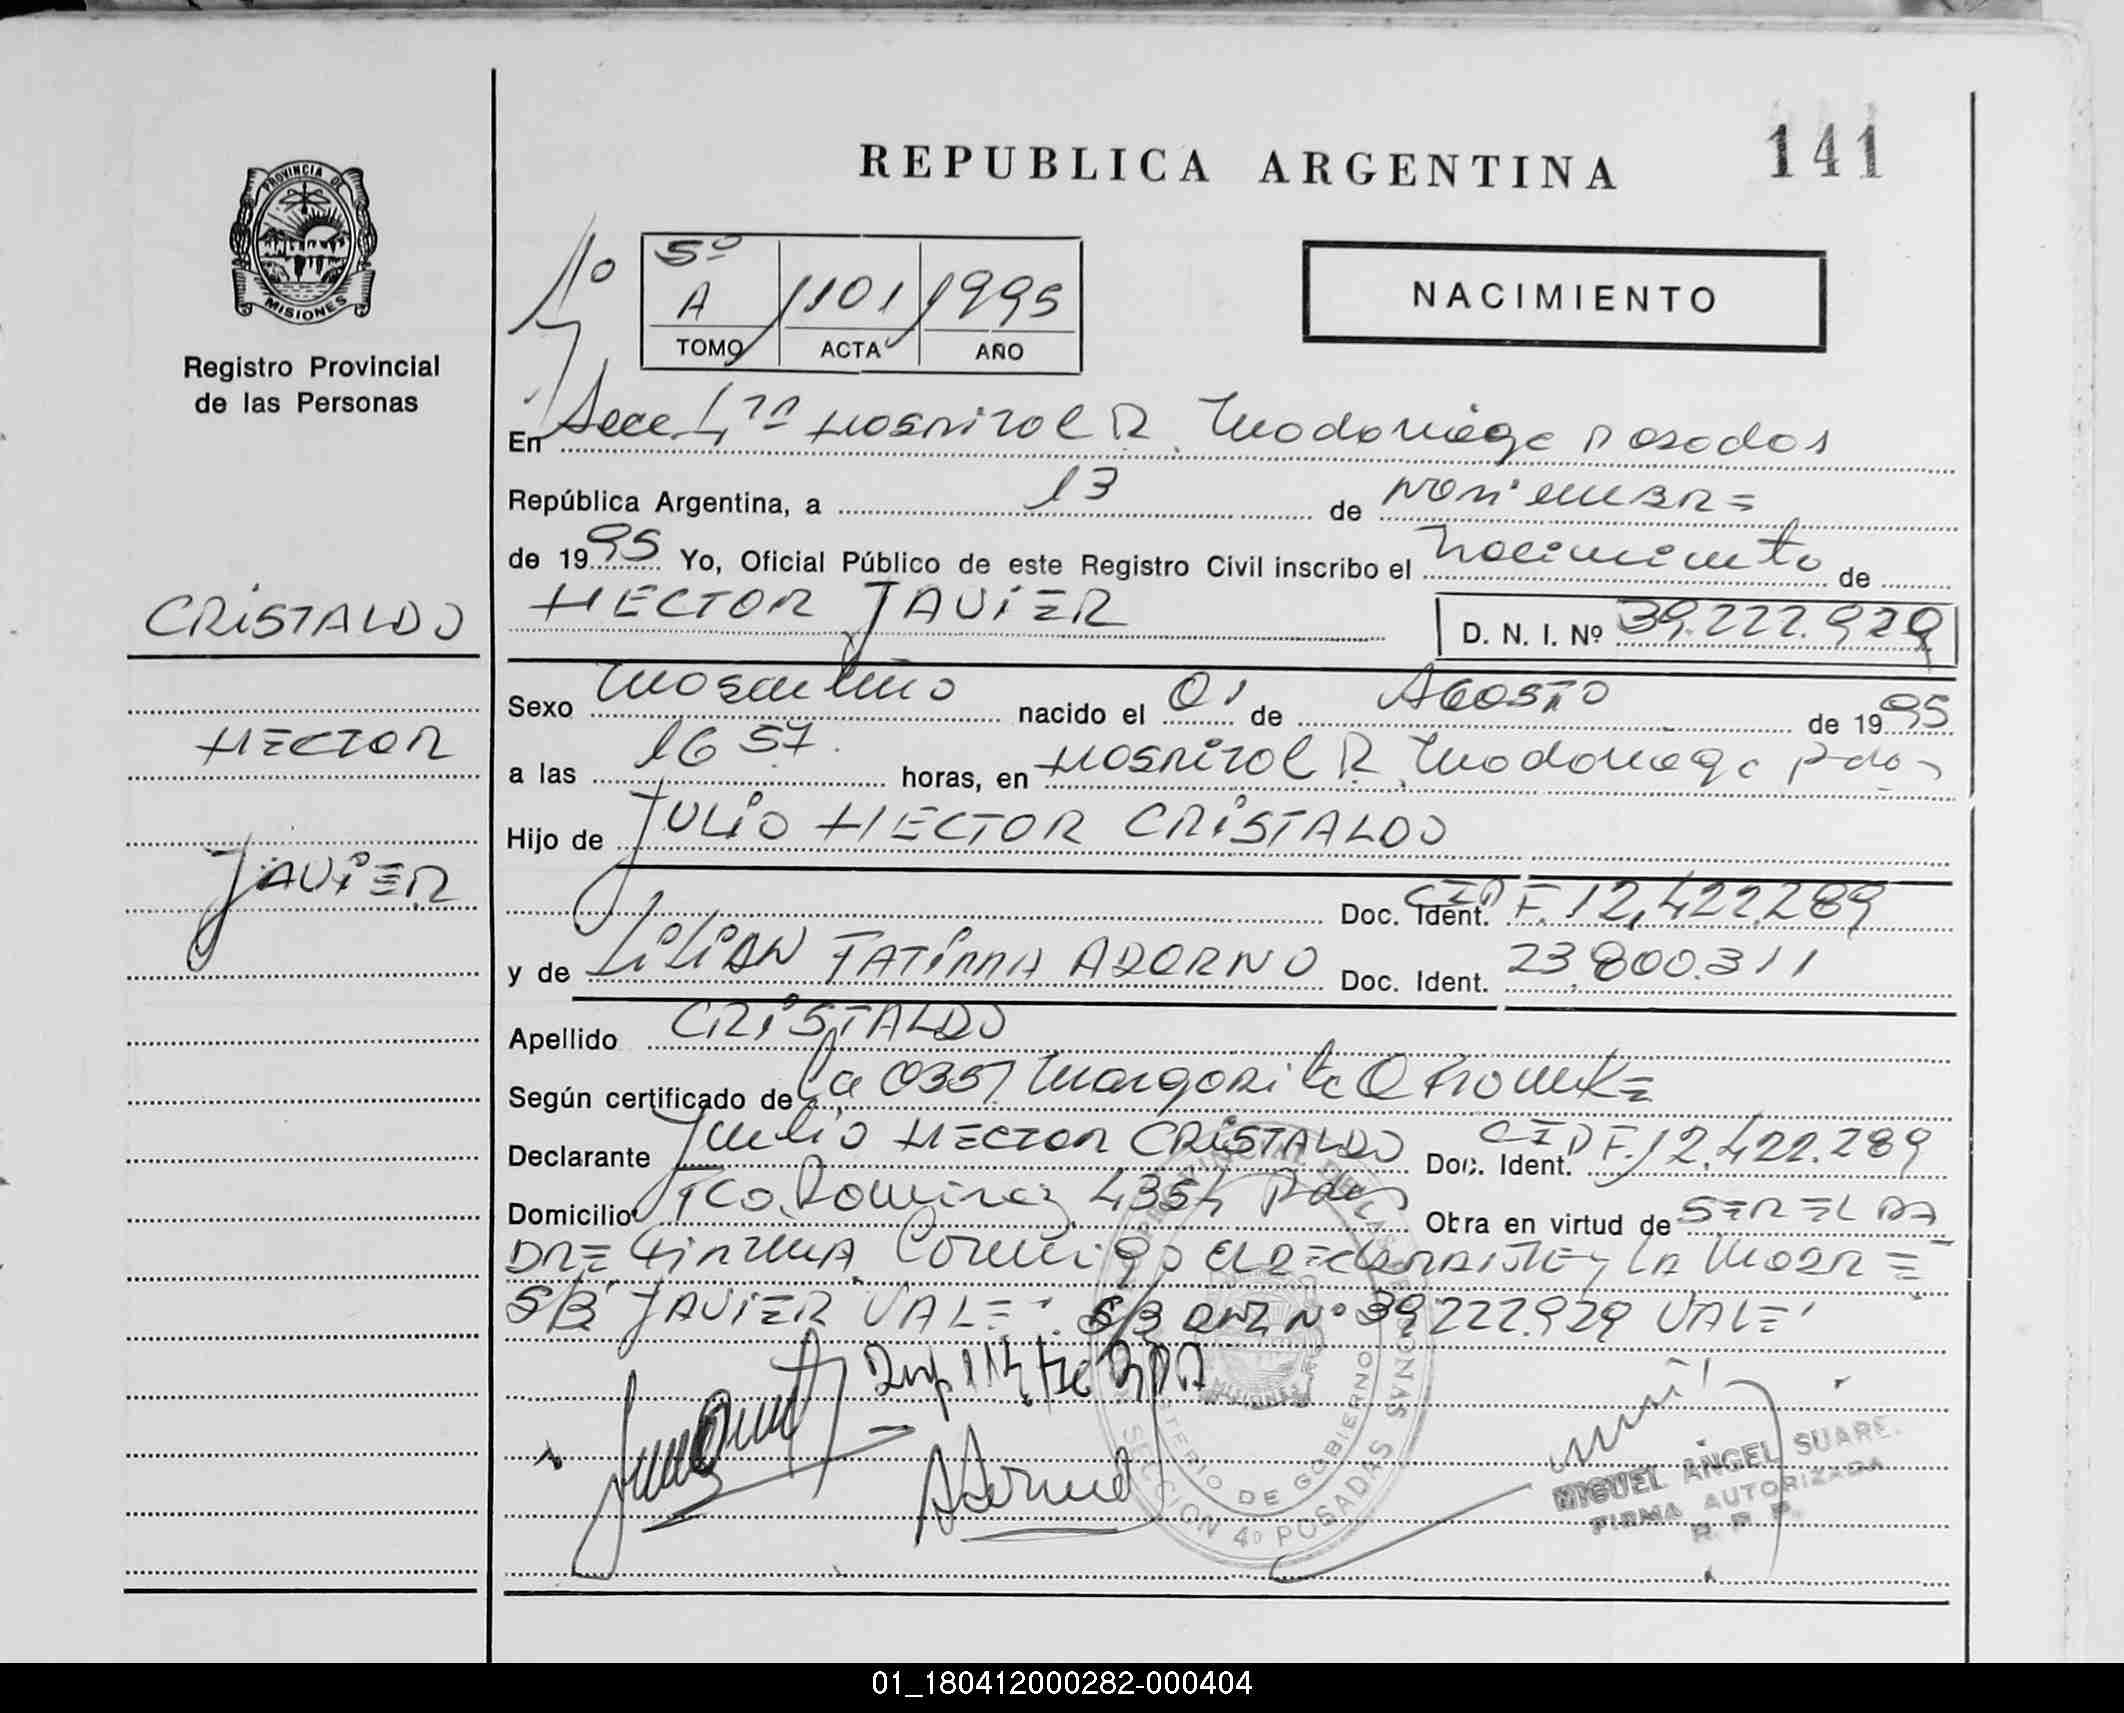 REPUBLICA ARGENTINA
141
PROVINCIA DE
MISIONES
Registro Provincial
de las Personas
5º
A 1101 1995
TOMO ACTA AÑO
NACIMIENTO
En Secc 4ta Hospital R. Madariaga Posadas
República Argentina, a 13 de Noviembre
de 1995 Yo, Oficial Público de este Registro Civil inscribo el Nacimiento de
CRISTALDO
HECTOR JAVIER
D. N. I. Nº 39.222.929
Sexo Masculino nacido el 01 de AGOSTO de 1995
HECTOR
a las 16 57. horas, en Hospital R. Madariaga Pdas
Hijo de JULIO HECTOR CRISTALDO
JAVIER
Doc. Ident. CI DF. 12,422.289
y de LILIAN FATIMA ADORNO Doc. Ident. 23.800.311
Apellido CRISTALDO
Según certificado de La 0357 Margarita
Declarante Julio HECTOR CRISTALDO Doc. Ident. CI DF. 12.422.289
Domicilio Fco. Ramirez 4354 Pdas Obra en virtud de SER EL PA
DRE FIRMA Conmigo el declarante y la MADRE
S/B JAVIER VALE. S/B DNI Nº 39.222.929 VALE
MIGUEL ANGEL SUARE
FIRMA AUTORIZADA
R. P. P.
MINISTERIO DE GOBIERNO
SECCION 4º POSADAS
MISIONES
01_180412000282-000404